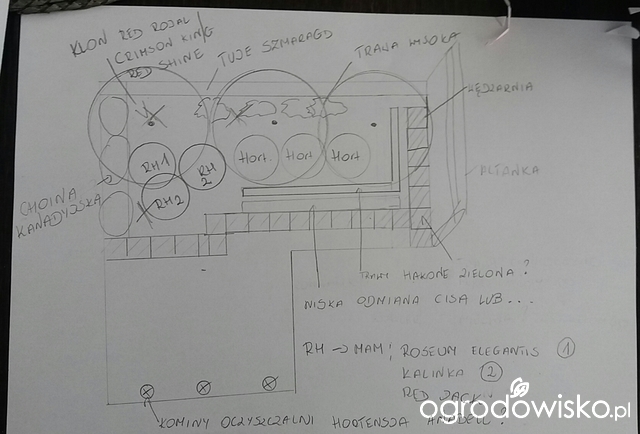 KLON RED ROJAL
CRIMSON KING
RED SHINE
TUJE SZMARAGD
TRAWA WYSOKA
WĘDZARNIA
ALTANKA
RH 1
RH 2
RH 2
Hort.
Hort
Hort
CHOINA
KANADYJSKA
TRAWY HAKONE ZIELONA ?
NISKA ODMIANA CISA LUB...
RH → MAM ; ROSEUM ELEGANTIS 1
KALINKA 2
RED JACK
KOMINY OCZYSZCZALNI HORTENSJA
ogrodowisko.pl